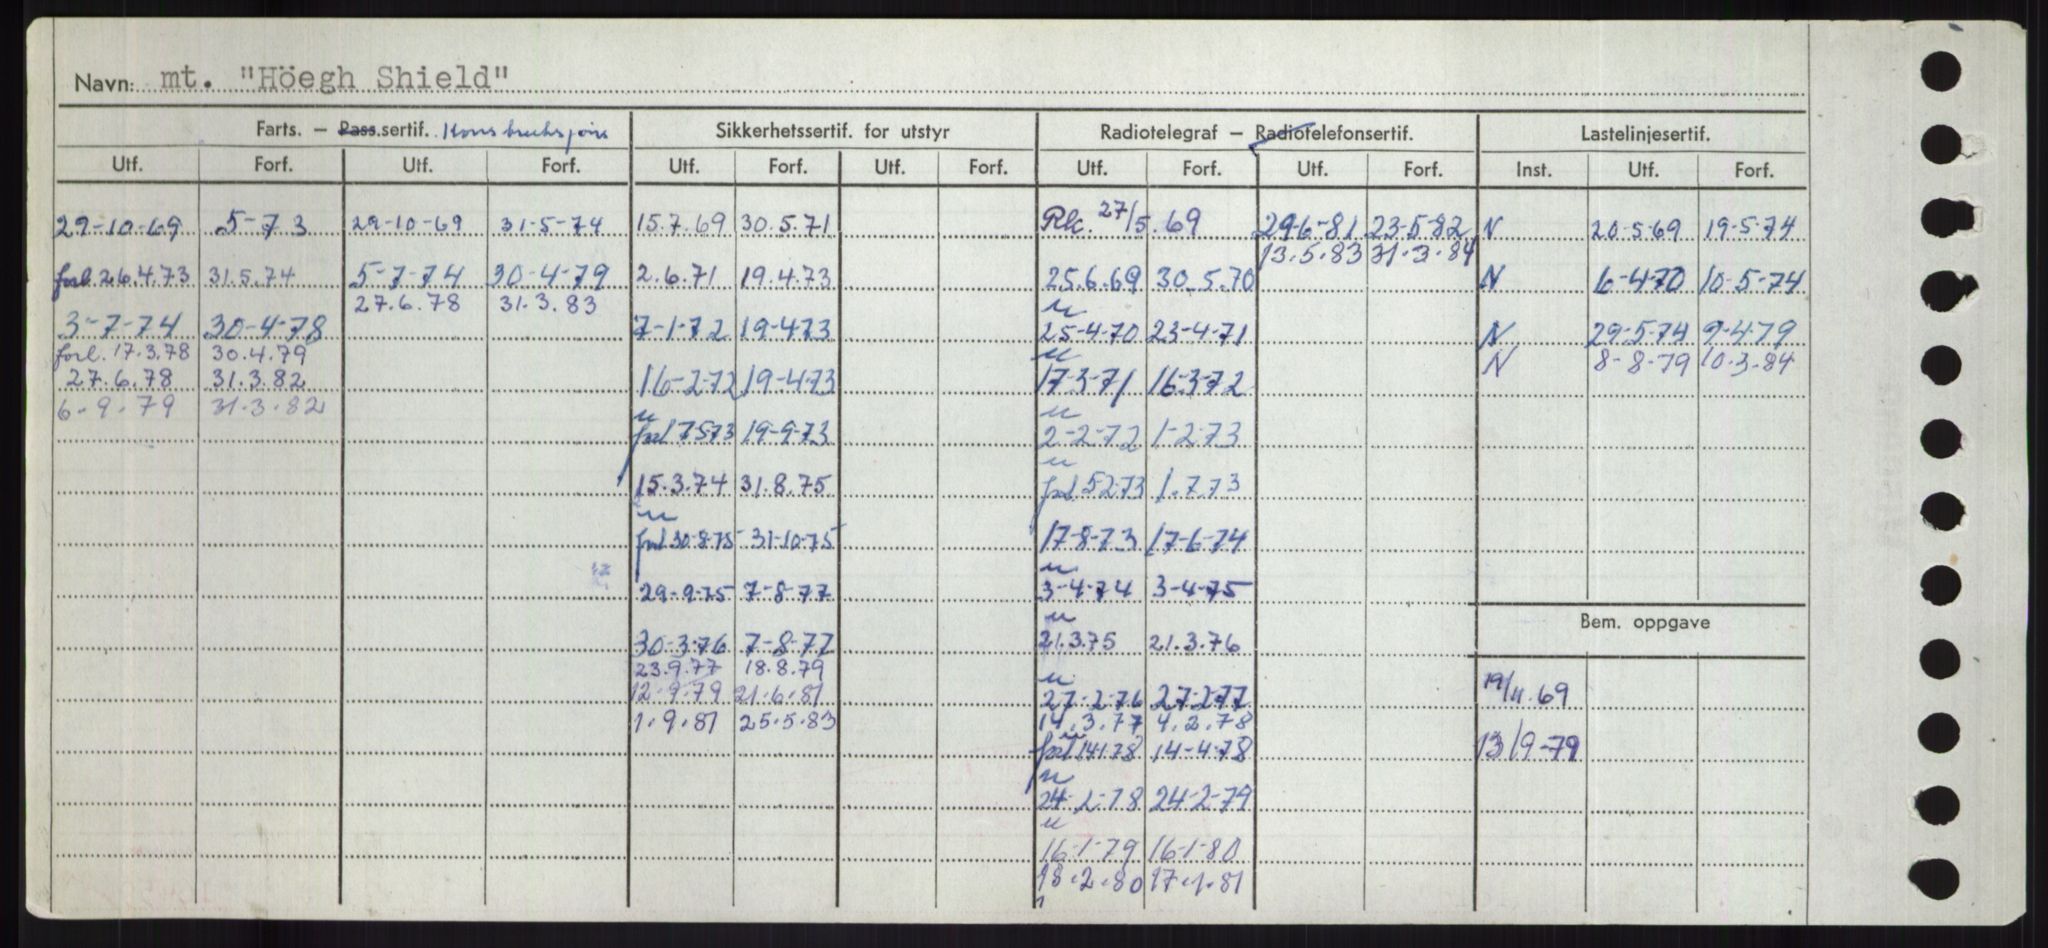 Navn: mt. "Höegh Shield"
Farts. – Pass.sertif. Konstruksjons Sikkerhetssertif. for utstyr Radiotelegraf – Radiotelefonsertif. Lastelinjesertif.
Utf. Forf. Utf. Forf. Utf. Forf. Utf. Forf. Utf. Forf. Utf. Forf. Inst. Utf. Forf.
29-10-69 5-73 29-10-69 31-5-74 15.7.69 30.5.71 Rk. 27/5.69 29-6-81 23-5-82 N 20-5-69 19-5-74
13.5.83 31.3.84
forl. 26.4.73 31.5.74 5-7-74 30-4-79 2.6.71 19.4.73 25.6.69 30.5.70 N 6-4-70 10-5-74
27.6.78 31.3.83 u
3-7-74 30-4-78 7-1-72 19-4-73 25-4-70 23-4-71 N 29-5-74 9-4-79
forl. 17.3.78 30.4.79 u N 8-8-79 10.3.84
27.6.78 31.3.82 16-2-72 19-4-73 17-3-71 16-3-72
6.9.79 31.3.82 u u
forl 7573 19-9-73 2-2-72 1-2-73
u
15.3.74 31.8.75 forl 5273 1.7.73
u
forl 30-8-75 31-10-75 17-8-73 17-6-74
u
29-9-75 7-8-77 3-4-74 3-4-75
u Bem. oppgave
30-3-76 7-8-77 21.3.75 21.3.76
23.9.77 18.8.79 u
12-9-79 21.6.81 27-2-76 27-2-77 19/11.69
1.9.81 25.5.83 14.3.77 4.2.78
forl 14178 14-4-78 13/9-79
u
24-2-78 24-2-79
u
16-1-79 16-1-80
18.2.80 17.1.81